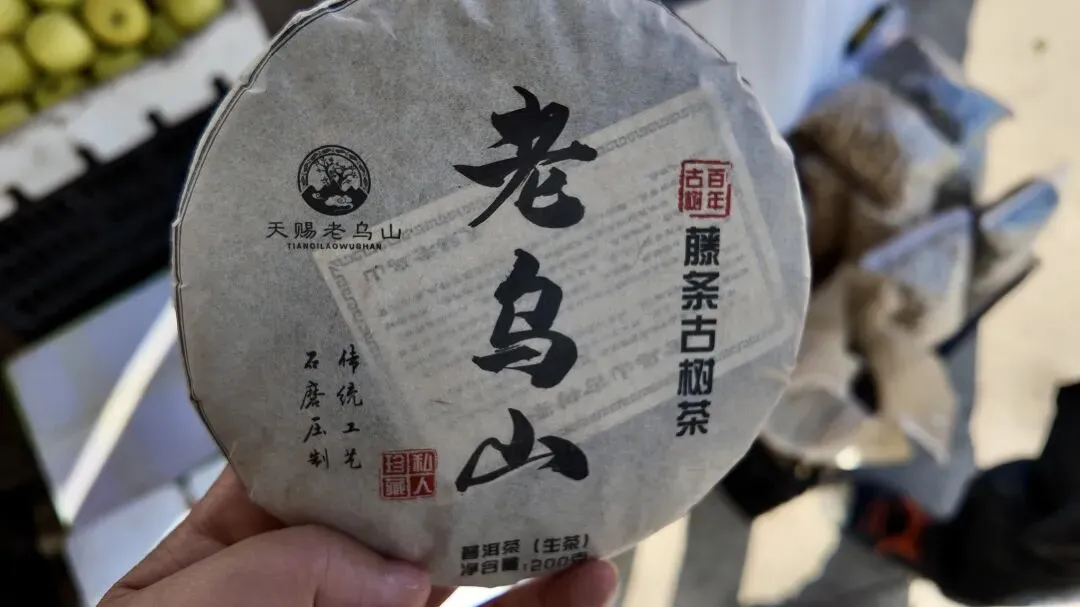 老乌山
百年
古树
藤条古树茶
天赐老乌山
TIANCILAOWUSHAN
传统工艺
石磨压制
私人
珍藏
普洱茶（生茶）
净含量:200克